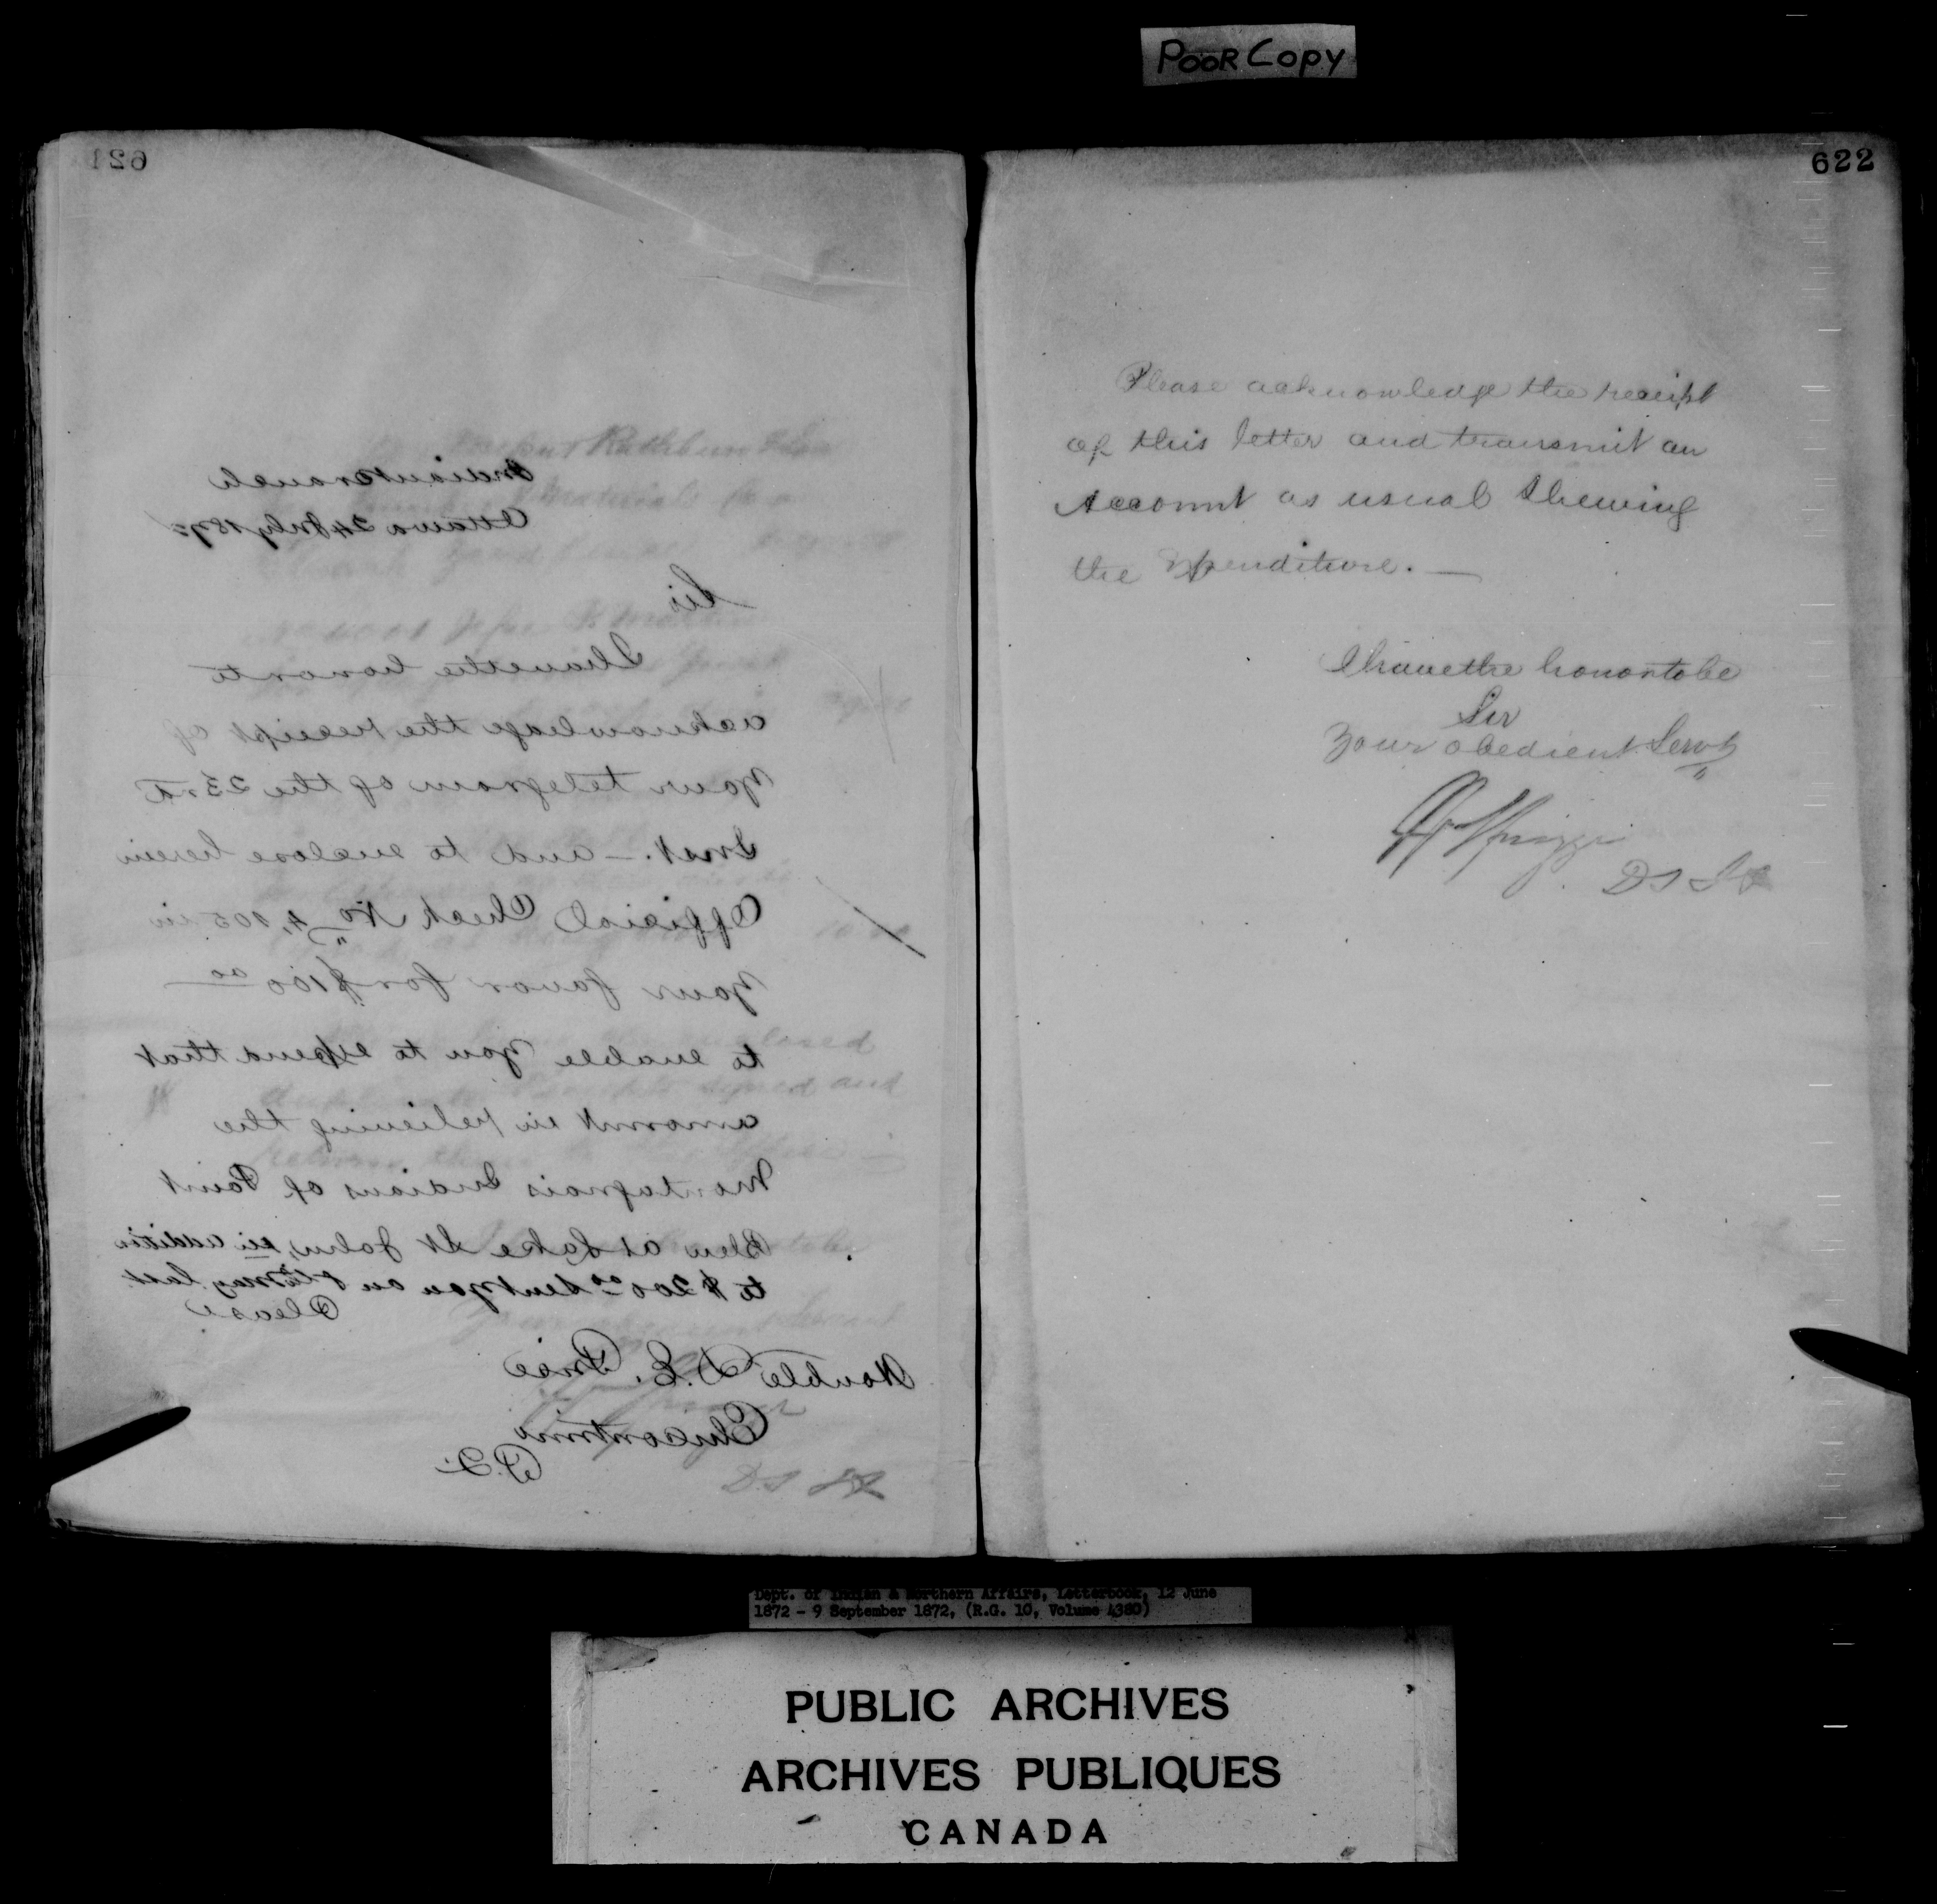 POOR COPY
621
Indian Branch
Ottawa 24 July 1872
Sir
I have the honor to
acknowledge the receipt of
your telegram of the 23rd
Inst. — and to enclose herein
Official Check No 4,105 in
your favor for $100 00
to enable you to expend that
amount in relieving the
Montagnais Indians of Point
Bleu at Lake St John, in addition
to $200 00 sent you on 8th May last
Please
Honble D. E. Price
Chicoutimi
P.Q.
622
Please acknowledge the receipt
of this letter and transmit an
Account as usual shewing
the Expenditure. —
I have the honor to be
Sir
Your obedient Servt
DSIA
Dept. of Indian & Northern Affairs, Letterbook, 12 June
1872 - 9 September 1872, (R.G. 10, Volume 4380)
PUBLIC ARCHIVES
ARCHIVES PUBLIQUES
CANADA